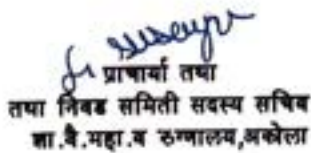 प्राचार्या तथा
तथा निवड समिती सदस्य सचिव
शा.वै.महा.व रुग्णालय,अकोला